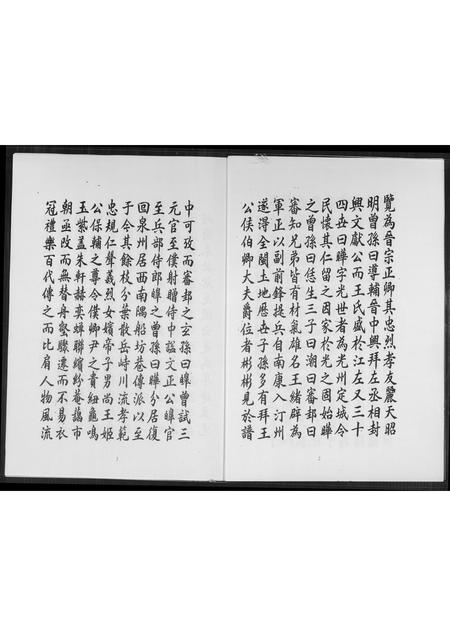 覽為晉宗正卿其忠烈孝友麗天昭
明曾孫曰導輔晉中興拜左丞相封
興文獻公而王氏盛於江左又三十
四世曰曄字光世者為光州定城令
民懷其仁留之因家於光之固始曄
之曾孫曰恁生三子曰潮曰審邽曰
審知兄弟皆有材氣雄名王緒辟為
軍正以副前鋒提兵自南康入汀州
遂淂全閩土地歷世子孫多有拜王
公侯伯卿大夫爵位者彬彬見於譜
中可攷而審邽之玄孫曰曄曾試三
元官至僕射贈侍中諡文正公曄官
至兵部侍郎曄之曾孫曰曄分居復
回泉州居西南隅船坊巷傳派以至
于今其餘枝分葉散岳峙川流孝範
忠規仁聲義烈女嬪帝子男尚王姬
公保輔之尊令僕卿尹之貴紐龜鳴
玉紫蓋朱軒赫奕蟬聯繽紛菴藹市
朝亟改而無替舟壑驟遷而不易衣
冠禮樂百代傳之而比肩人物風流